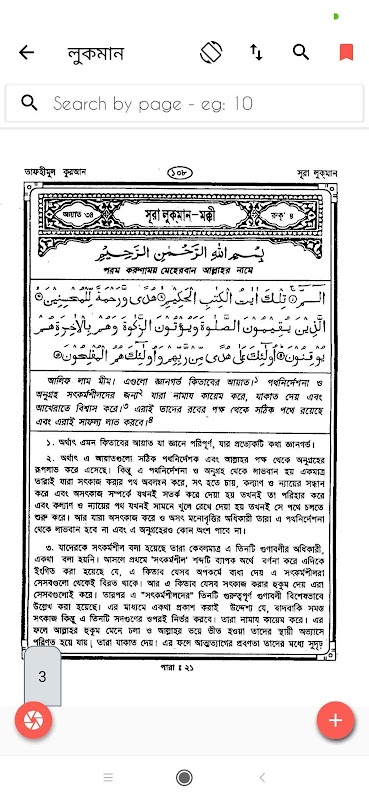 লুকমান
Search by page - eg: 10
তাফহীমুল কুরআন
১০৮
সূরা লুকমান
আয়াত ৩৪
সূরা লুকমান-মক্কী
রুকূ' ৪
بِسْمِ اللّٰهِ الرَّحْمٰنِ الرَّحِيْمِ
পরম করুণাময় মেহেরবান আল্লাহর নামে
الٓـمّٓ ① تِلْكَ اٰيٰتُ الْكِتٰبِ الْحَكِيْمِ ② هُدًى وَّرَحْمَةً لِّلْمُحْسِنِيْنَ ③
الَّذِيْنَ يُقِيْمُوْنَ الصَّلٰوةَ وَيُؤْتُوْنَ الزَّكٰوةَ وَهُمْ بِالْاٰخِرَةِ هُمْ
يُوْقِنُوْنَ ④ اُولٰٓئِكَ عَلٰى هُدًى مِّنْ رَّبِّهِمْ وَاُولٰٓئِكَ هُمُ الْمُفْلِحُوْنَ ⑤
আলিফ লাম মীম। এগুলো জ্ঞানগর্ভ কিতাবের আয়াত।১ পথনির্দেশনা ও
অনুগ্রহ সৎকর্মশীলদের জন্য২ যারা নামায কায়েম করে, যাকাত দেয় এবং
আখেরাতে বিশ্বাস করে।৩ এরাই তাদের রবের পক্ষ থেকে সঠিক পথে রয়েছে
এবং এরাই সাফল্য লাভ করবে।৪
১. অর্থাৎ এমন কিতাবের আয়াত যা জ্ঞানে পরিপূর্ণ, যার প্রত্যেকটি কথা জ্ঞানগর্ভ।
২. অর্থাৎ এ আয়াতগুলো সঠিক পথনির্দেশক এবং আল্লাহর পক্ষ থেকে অনুগ্রহের
রূপলাভ করে এসেছে। কিন্তু এ পথনির্দেশনা ও অনুগ্রহ থেকে লাভবান হয় একমাত্র
তারাই যারা সৎকাজ করার পথ অবলম্বন করে, সৎ হতে চায়, কল্যাণ ও ন্যায়ের সন্ধান
করে এবং অসৎকাজ সম্পর্কে যখনই সতর্ক করে দেয়া হয় তখনই তা পরিহার করে
এবং কল্যাণ ও ন্যায়ের পথ যখনই সামনে খুলে রেখে দেয়া হয় তখনই সে পথে চলতে
শুরু করে। আর যারা অসৎকাজ করে ও অসৎ মনোবৃত্তির অধিকারী তারা এ পথনির্দেশনা
থেকে লাভবান হবে না এবং এ অনুগ্রহেরও কোন অংশ পাবে না।
৩. যাদেরকে সৎকর্মশীল বলা হয়েছে তারা কেবলমাত্র এ তিনটি গুণাবলীর অধিকারী,
একথা বলা হয়নি। আসলে প্রথমে 'সৎকর্মশীল' শব্দটি ব্যাপক অর্থে বর্ণনা করে এদিকে
ইংগিত করা হয়েছে যে, এ কিতাব যেসব অপকর্মে বাধা দেয় এ সৎকর্মশীলরা
সেসবগুলো থেকেই বিরত থাকে। আর এ কিতাব যেসব সৎকাজ করার হুকুম দেয় এরা
সেসবগুলোই করে। তারপর এ "সৎকর্মশীলদের" তিনটি গুরুত্বপূর্ণ গুণাবলী বিশেষভাবে
উল্লেখ করা হয়েছে। এর মাধ্যমে একথা প্রকাশ করাই উদ্দেশ্য যে, বাদবাকি সমস্ত
সৎকাজ কিন্তু এ তিনটি সদগুণের ওপরই নির্ভর করবে। তারা নামায কায়েম করে। এর
ফলে আল্লাহর হুকুম মেনে চলা ও আল্লাহর ভয়ে ভীত হওয়া তাদের স্থায়ী অভ্যাসে
পরিণত হয়ে যায়। তারা যাকাত দেয়। এর ফলে আত্মত্যাগের প্রবণতা তাদের মধ্যে সুদৃঢ়
পারা : ২১
3